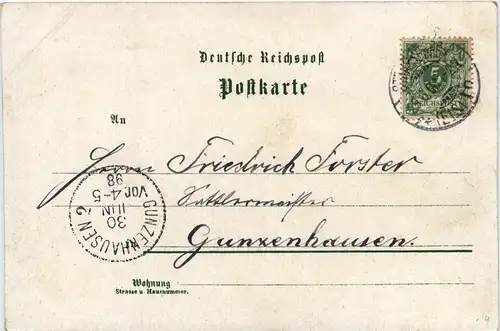 Deutsche Reichspost
Postkarte
5
REICHSPOST
An
Herrn Friedrich Forster
Sattlermeister
Gunzenhausen.
GUNZENHAUSEN 2
30
JUN
Vor. 4-5
98
Wohnung
Strasse u. Hausnummer.